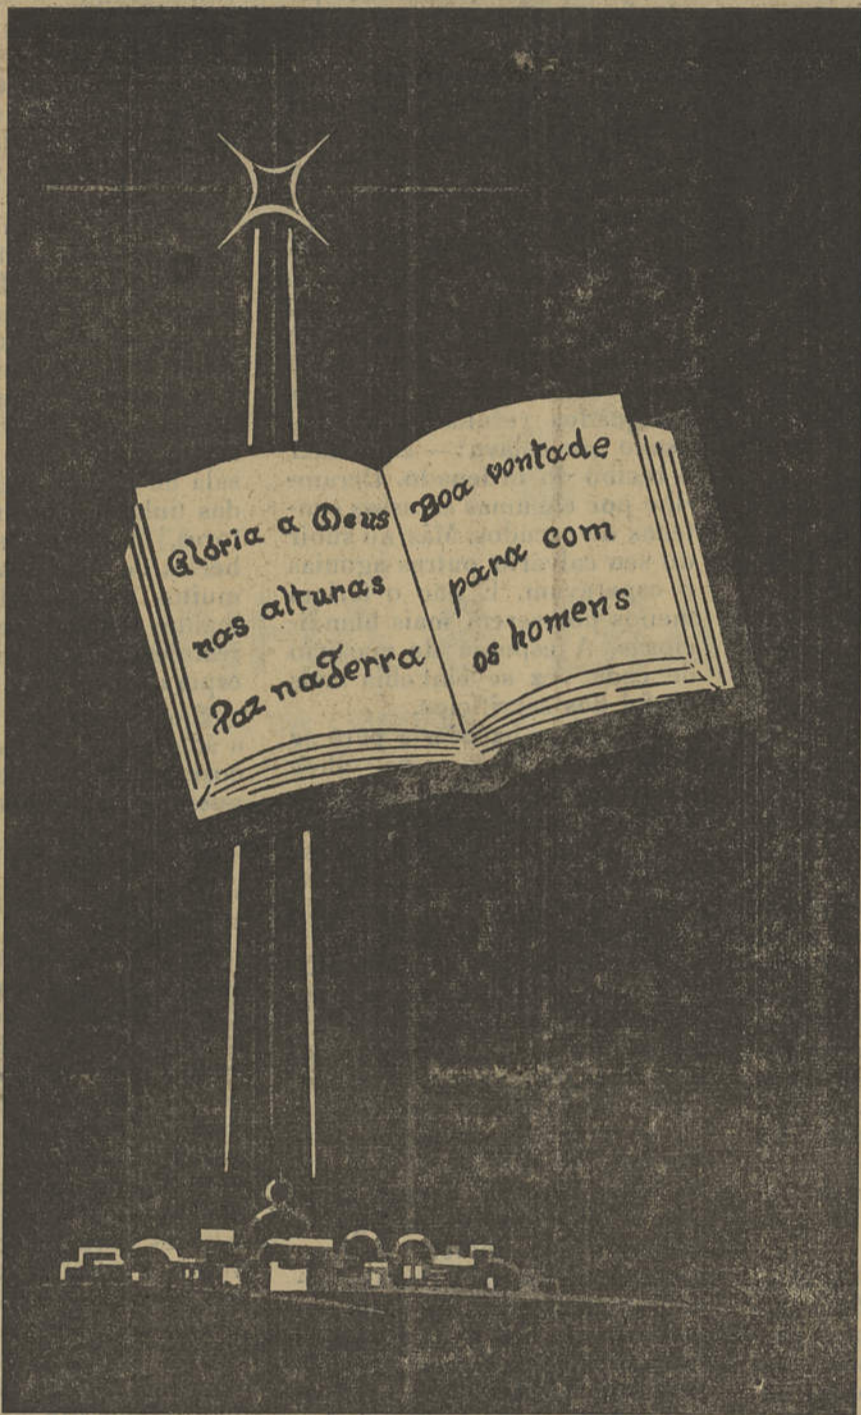 Glória a Deus
nas alturas
Paz na Terra
Boa vontade
para com
os homens